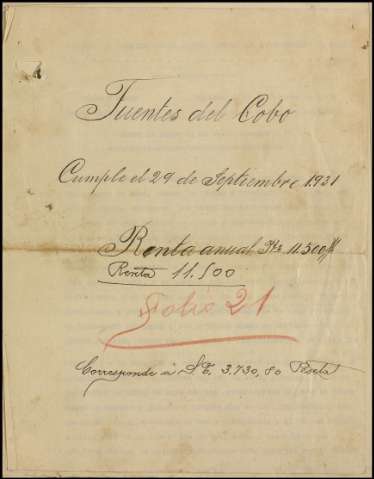 Fuentes del Cobo
Cumple el 29 de Septiembre 1931
Renta anual Pts 11.500
Renta 11.500
Folio 21
Corresponde a S.E. 3,730,80 Pesetas